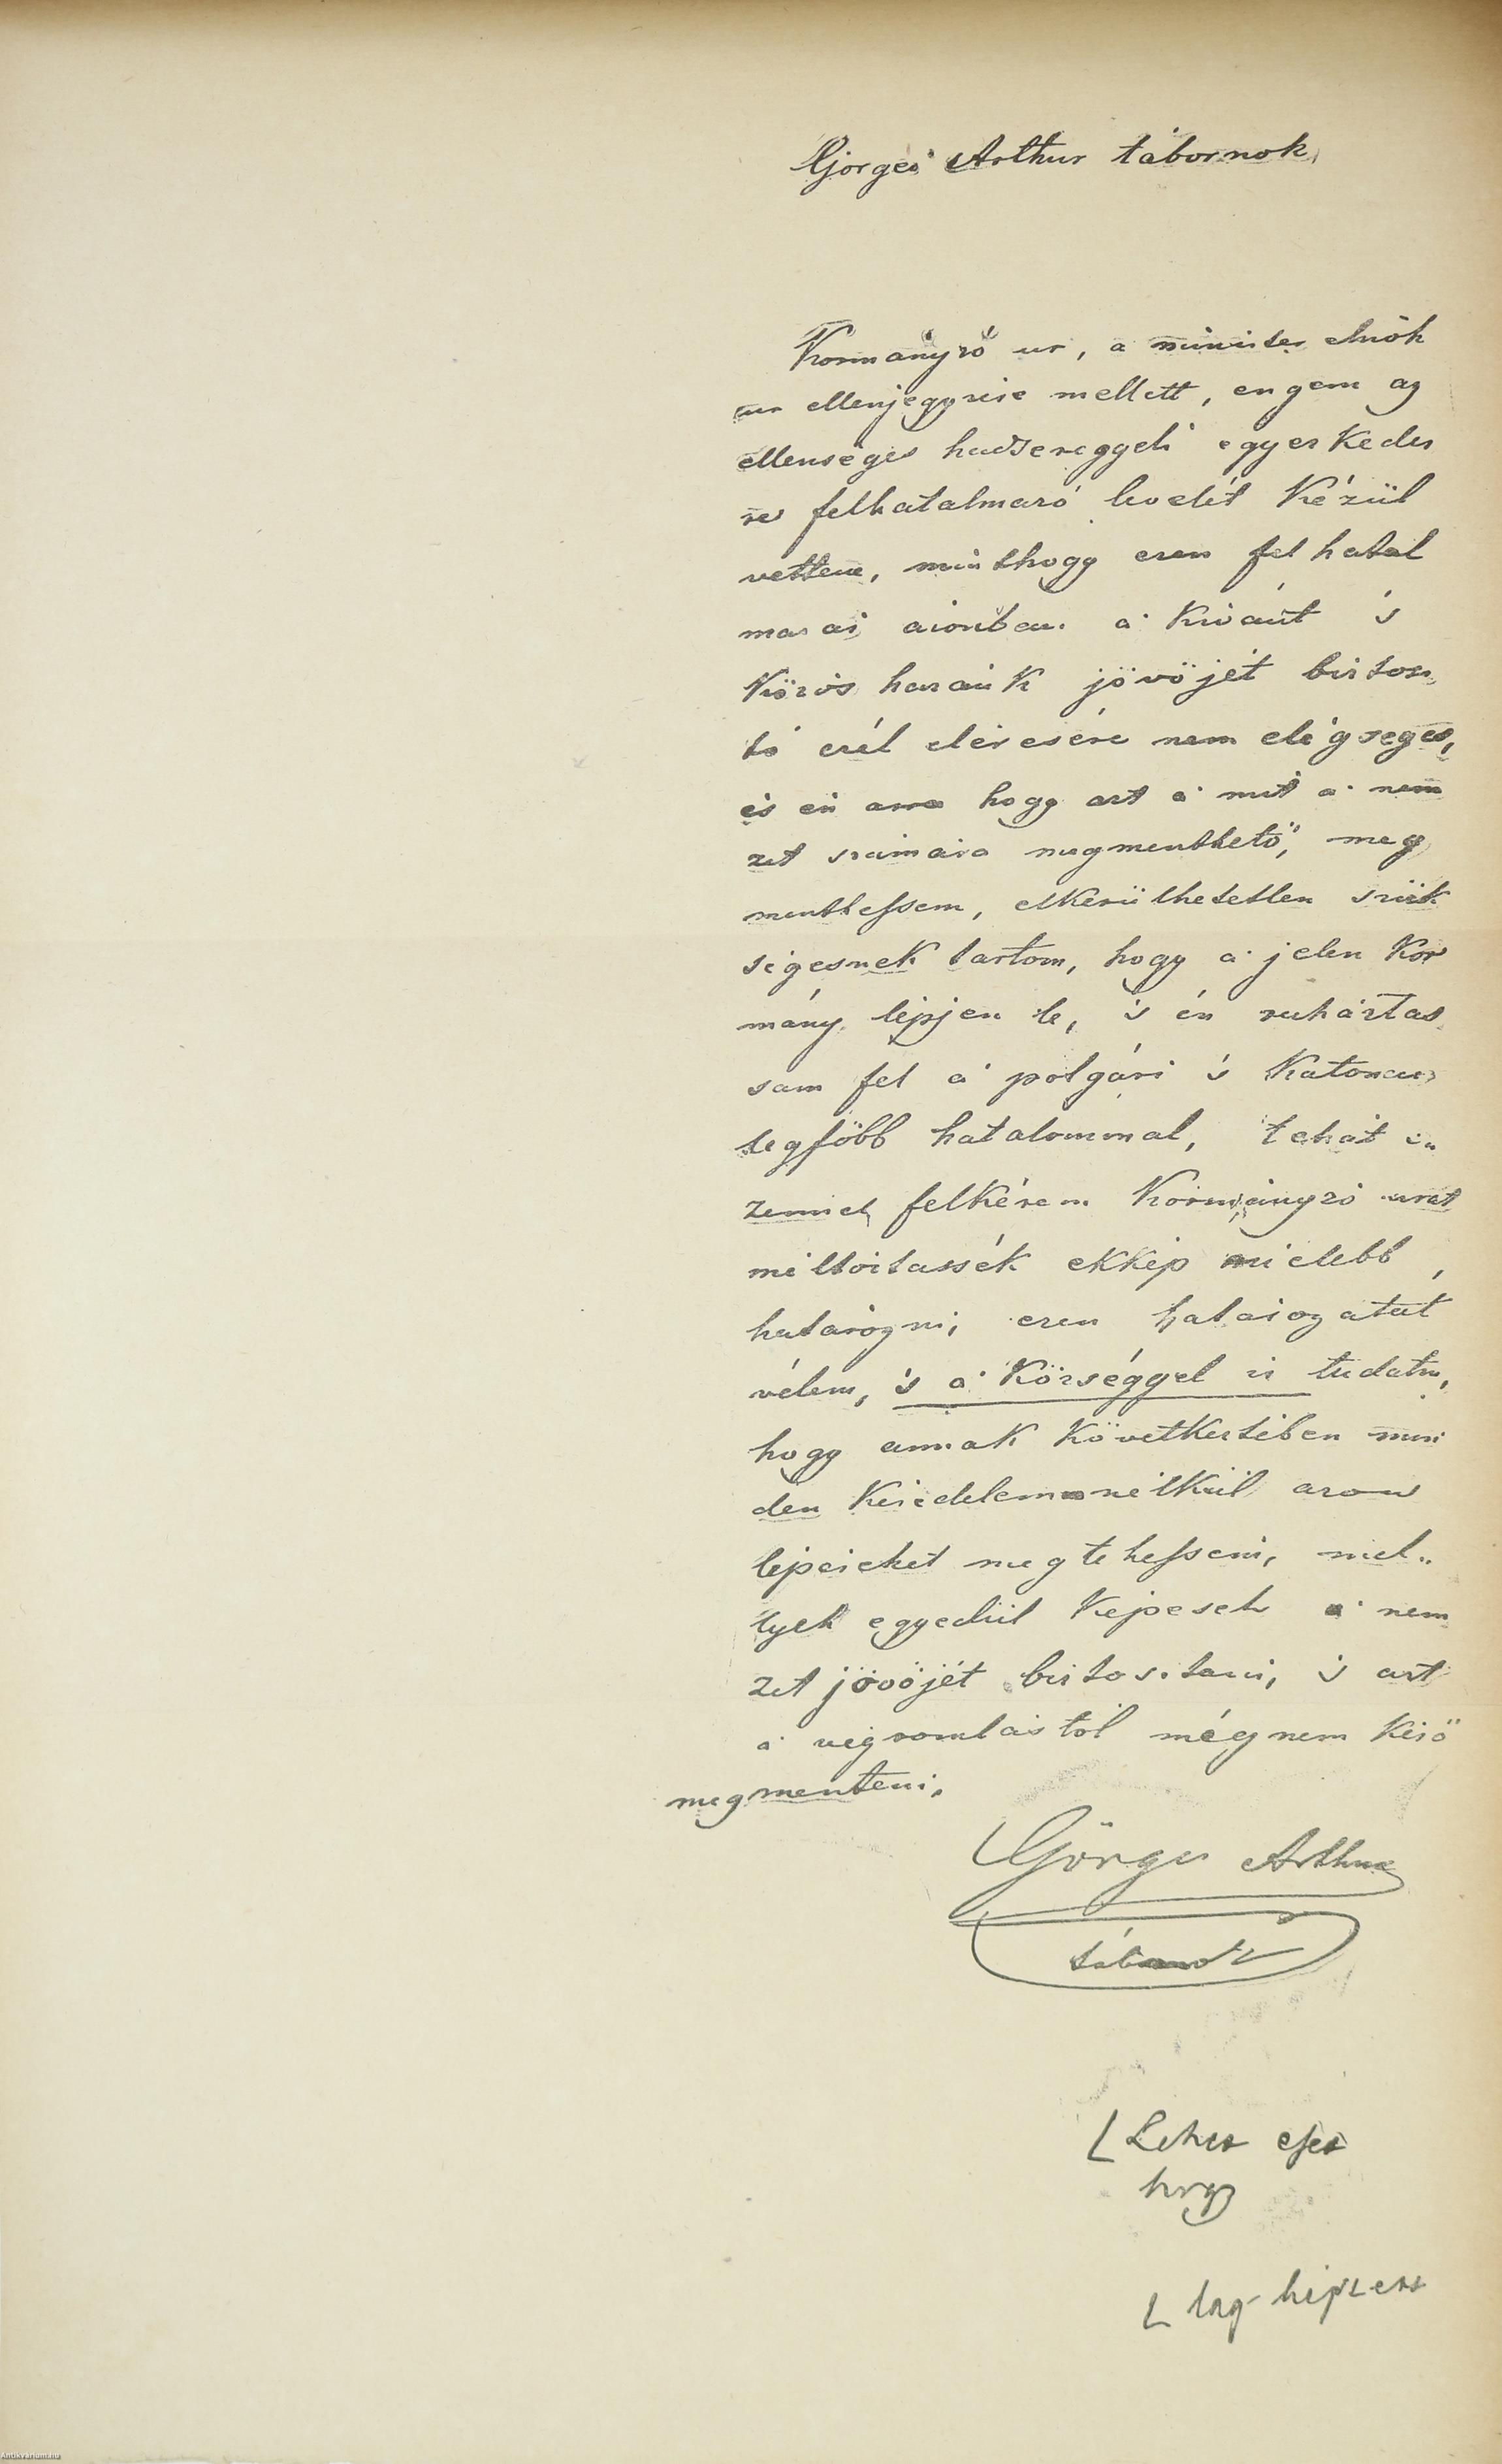 Görgei Arthur tábornok,
Kormányzó ur, a minister elnök
ur ellenjegyzése mellett, engem az
ellenséges hadsereggeli egyezkedés
re felhatalmazó levelét kézül
vettem, minthogy ezen felhatal
mazás azonban a' kivánt 's
közös hazánk jövöjét biztosi
tó czél elérésére nem elégséges,
és én arra hogy azt a' mit a' nem
zet számára megmenthető, meg
menthessem, elkerülhetetlen szük
ségesnek tartom, hogy a' jelen kor
mány lépjen le, 's én ruháztas
sam fel a' polgári 's katonai
legföbb hatalommal, tehát én
felkérem Kormányzó urat
méltóztassék ekkép mielebb,
határozni, ezen határozatát
vélem, 's a' községgel is tudatni,
hogy annak következtében min
den késedelem nélkül azon
lépéseket megtehessem, mel„
lyek egyedül képesek a' nem
zet jövöjét biztositani, 's azt
a' végromlástól még nem késő
megmenteni.
Görgei Arthur
tábornok
hogy